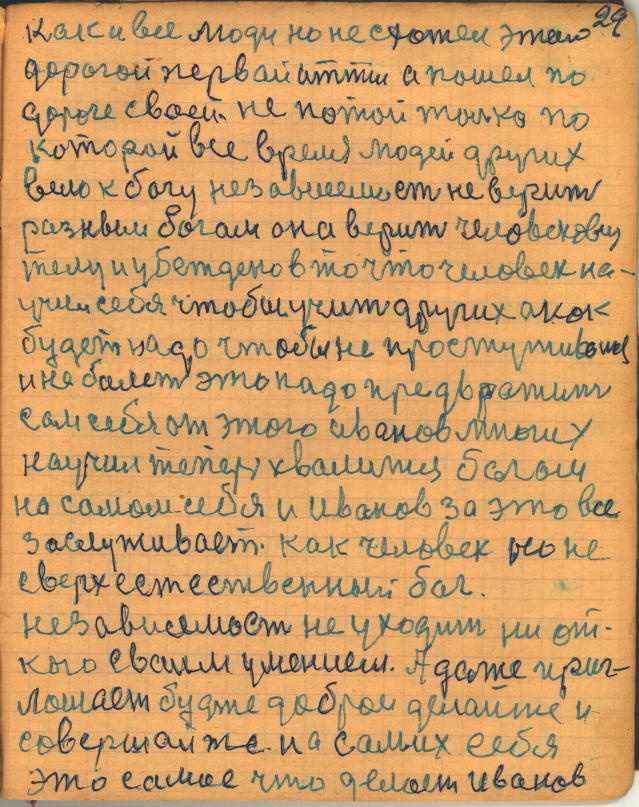 29
как и все люди но не схотел этой
дорогой первай итти а пошел по
дороге своей. не потой толко по
которой все время людей других
вело к богу независемост не верит
разным богам она верит человековму
телу и убежденов то что человек на-
учил себя чтобы учит других а как
будет надо чтобы не простуживатца
и не болет это надо предвратит
сам себя от этого иванов многих
научил тепер хвалитця богом
на самом себя и иванов за это все
заслуживает. как человек но не
сверхестественный бог.
независемост не уходит ни от-
кого своим умением. А даже приг-
лошает будте добром делайте и
совершайте на самих себя
это самое что делает иванов